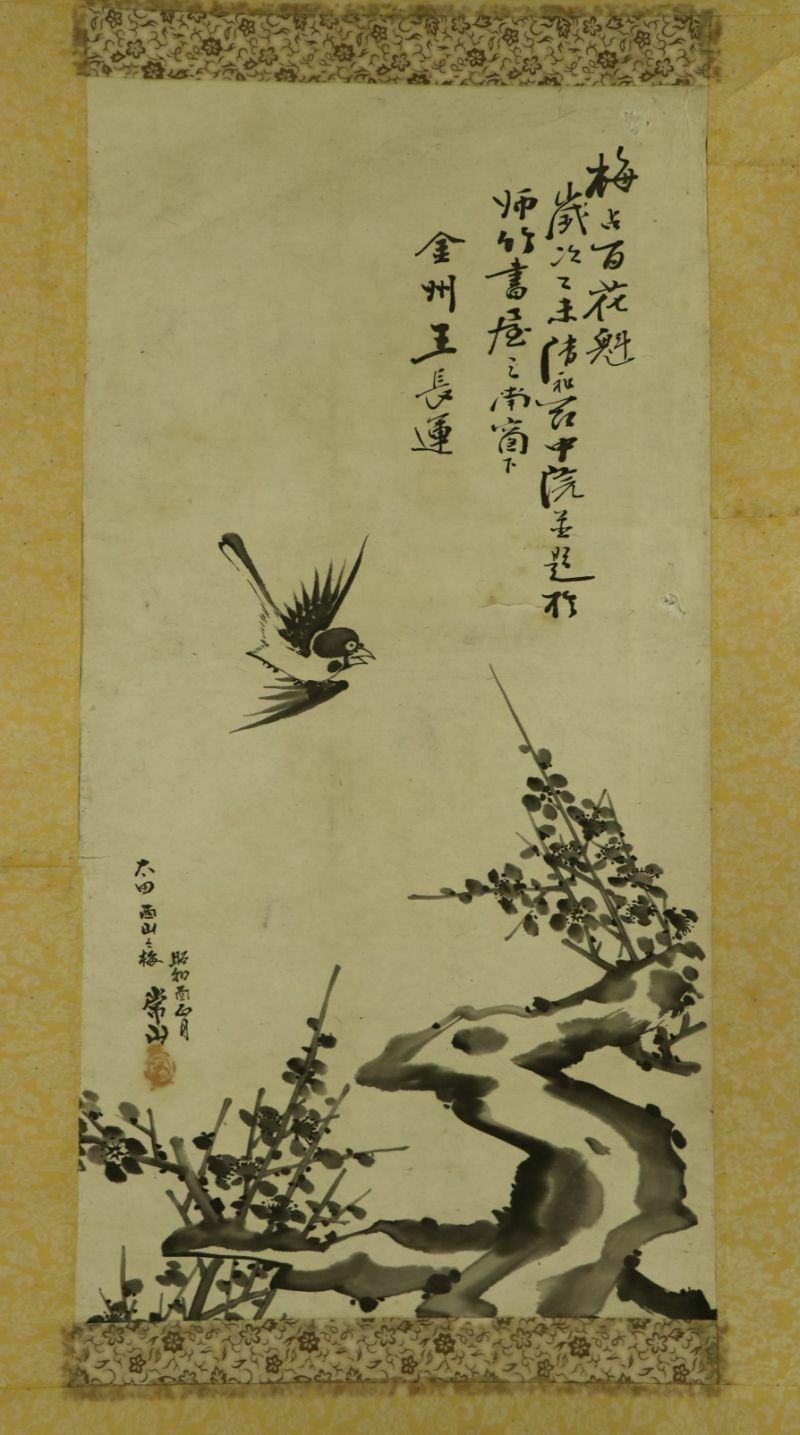 梅占百花魁
歲次乙未清和召中院並題於
师竹書屋之南窗下
金州王長運
太田西山之梅
昭和酉正月
常山